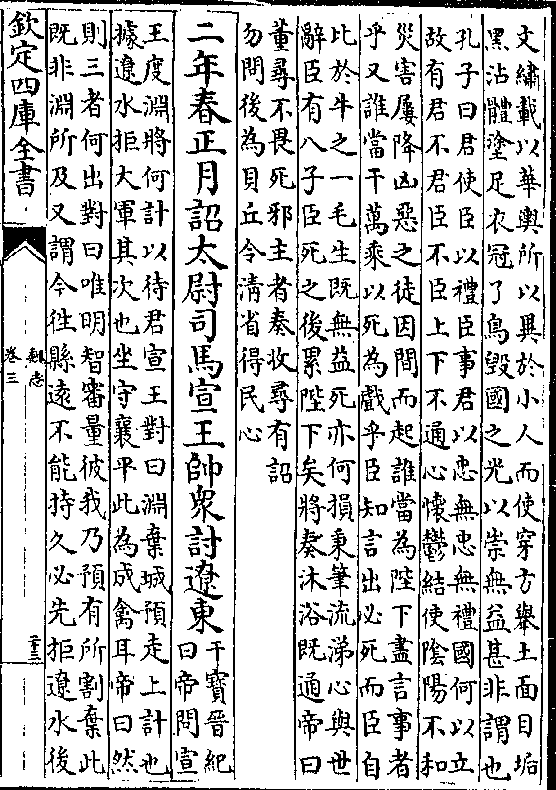 文繡載以華輿所以異於小人而使穿方舉土面目垢
黑沾體塗足衣冠了鳥毀國之光以崇無益甚非謂也
孔子曰君使臣以禮臣事君以忠無忠無禮國何以立
故有君不君臣不臣上下不通心懷鬱結使陰陽不和
災害屢降凶惡之徒因間而起誰當為陛下盡言事者
乎又誰當干萬乘以死為戲乎臣知言出必死而臣自
比於牛之一毛生既無益死亦何損秉筆流涕心與世
辭臣有八子臣死之後累陛下矣將奏沐浴既通帝曰
董尋不畏死邪主者奏收尋有詔
勿問後為貝丘令清省得民心
二年春正月詔太尉司馬宣王帥衆討遼東
干寶晉紀
曰帝問宣
王度淵將何計以待君宣王對曰淵棄城預走上計也
據遼水拒大軍其次也坐守襄平此為成禽耳帝曰然
則三者何出對曰唯明智審量彼我乃預有所割棄此
既非淵所及又謂今徃縣遠不能持久必先拒遼水後
欽定四庫全書
魏志
卷三
二十三